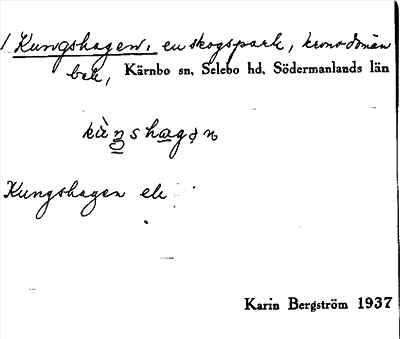 1 Kungshagen, en skogspark, kronodomän
bel, Kärnbo sn. Selebo hd. Södermanlands län
Kungshagen ek
Karin Bergström 1937